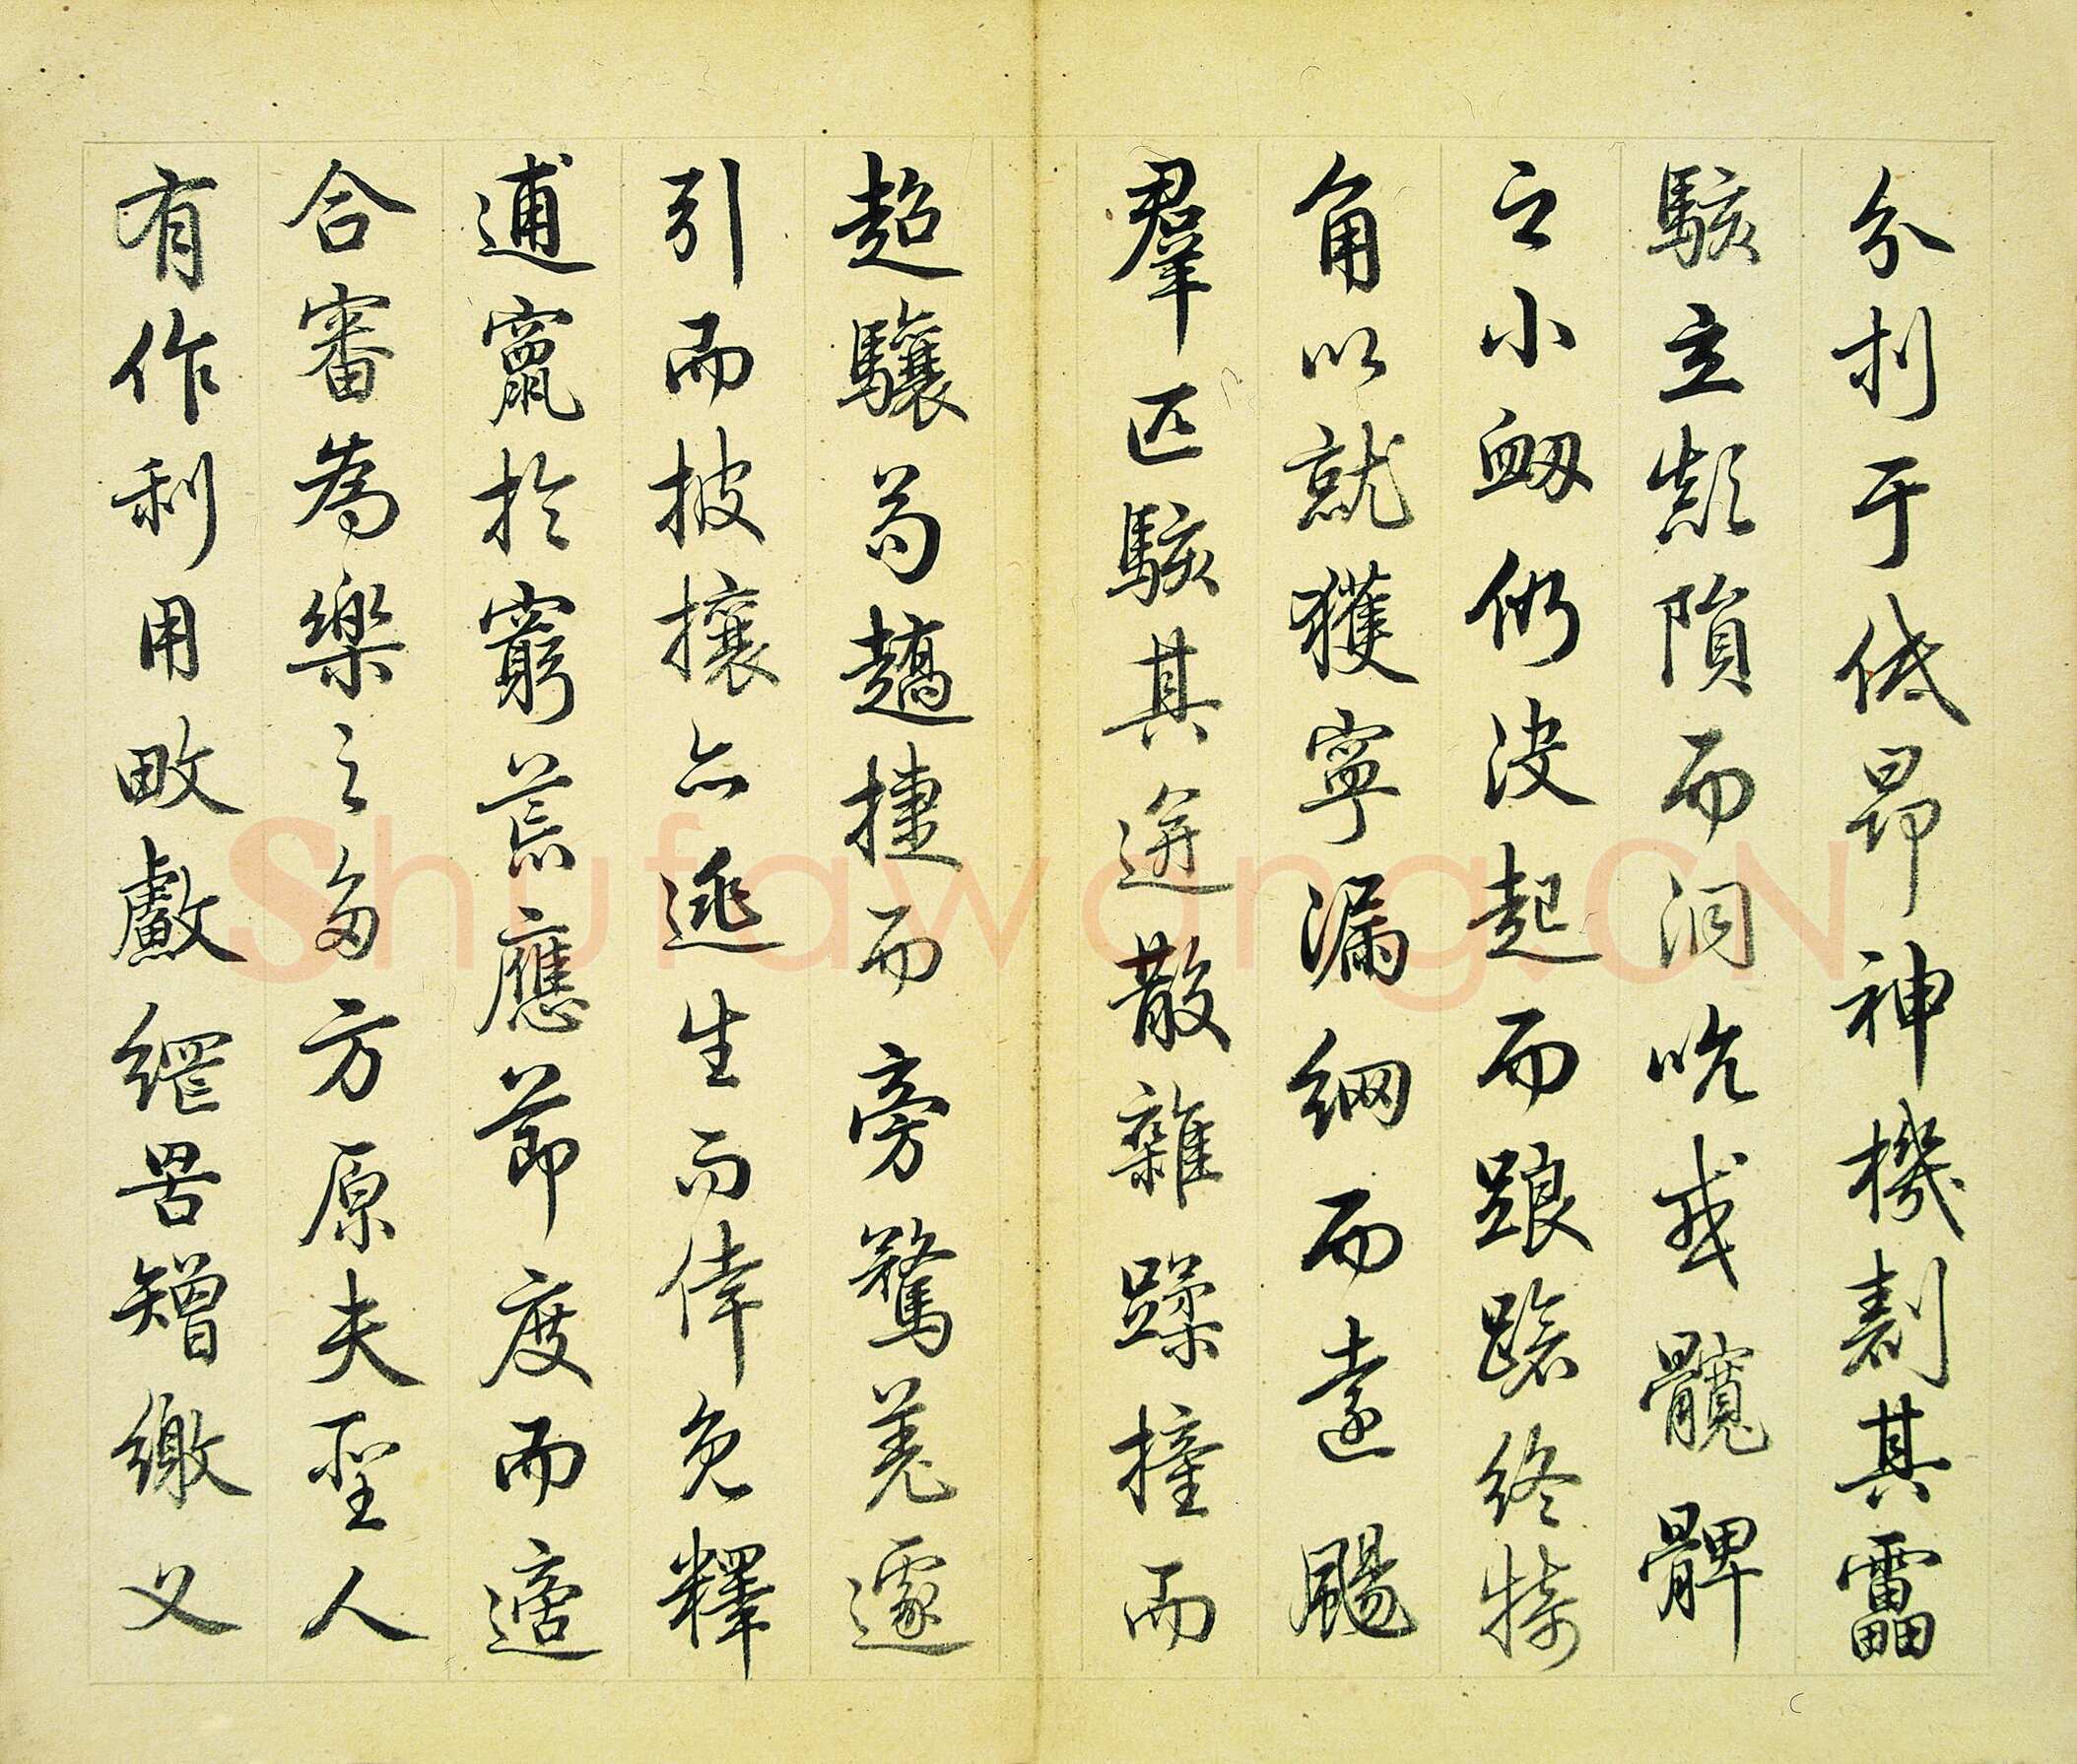 分刌于低昂神機剨其靁
駭立顛隕而洞吭或髖髀
之小衂仍决起而踉蹌終犄
角以就獲寧漏網而遠颺
羣匹駭其迸散雜蹂撞而
超驤苟趫捷而旁騖羌邃
引而披攘亦逃生而倖免釋
逋竄於窮荒應節度而適
合審為樂之多方原夫聖人
有作利用畋漁繩罟矰繳乂
Shufawang.CN